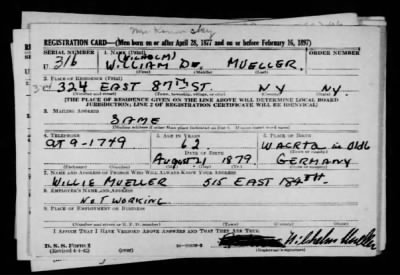 REGISTRATION CARD—(Men born on or after April 28, 1877 and on or before February 16, 1897)
SERIAL NUMBER 1. NAME (Print) ORDER NUMBER
(WILHOLM)
U 316 WLLIAM DE. MUELLER.
(First) (Middle) (Last)
2. PLACE OF RESIDENCE (Print)
324 EAST 87TH ST. NY NY.
(Number and street) (Town, township, village, or city) (County) (State)
[THE PLACE OF RESIDENCE GIVEN ON THE LINE ABOVE WILL DETERMINE LOCAL BOARD
JURISDICTION; LINE 2 OF REGISTRATION CERTIFICATE WILL BE IDENTICAL]
3. MAILING ADDRESS
SAME
[Mailing address if other than place indicated on line 2. If same insert word same]
4. TELEPHONE 5. AGE IN YEARS 6. PLACE OF BIRTH
62
DATE OF BIRTH
AT 9-1779 August 1879. GERMANY
(Exchange) (Number) (Mo.) (Day) (Yr.) (State or country)
7. NAME AND ADDRESS OF PERSON WHO WILL ALWAYS KNOW YOUR ADDRESS
WILLIE MUELLER 515 EAST 184TH.
8. EMPLOYER'S NAME AND ADDRESS
NOT WORKING
9. PLACE OF EMPLOYMENT OR BUSINESS
(Number and street or R. F. D. number) (Town) (County) (State)
I AFFIRM THAT I HAVE VERIFIED ABOVE ANSWERS AND THAT THEY ARE TRUE.
D. S. S. Form 1
(Revised 4-1-42) Wilhelm Mueller
(Registrant's signature)